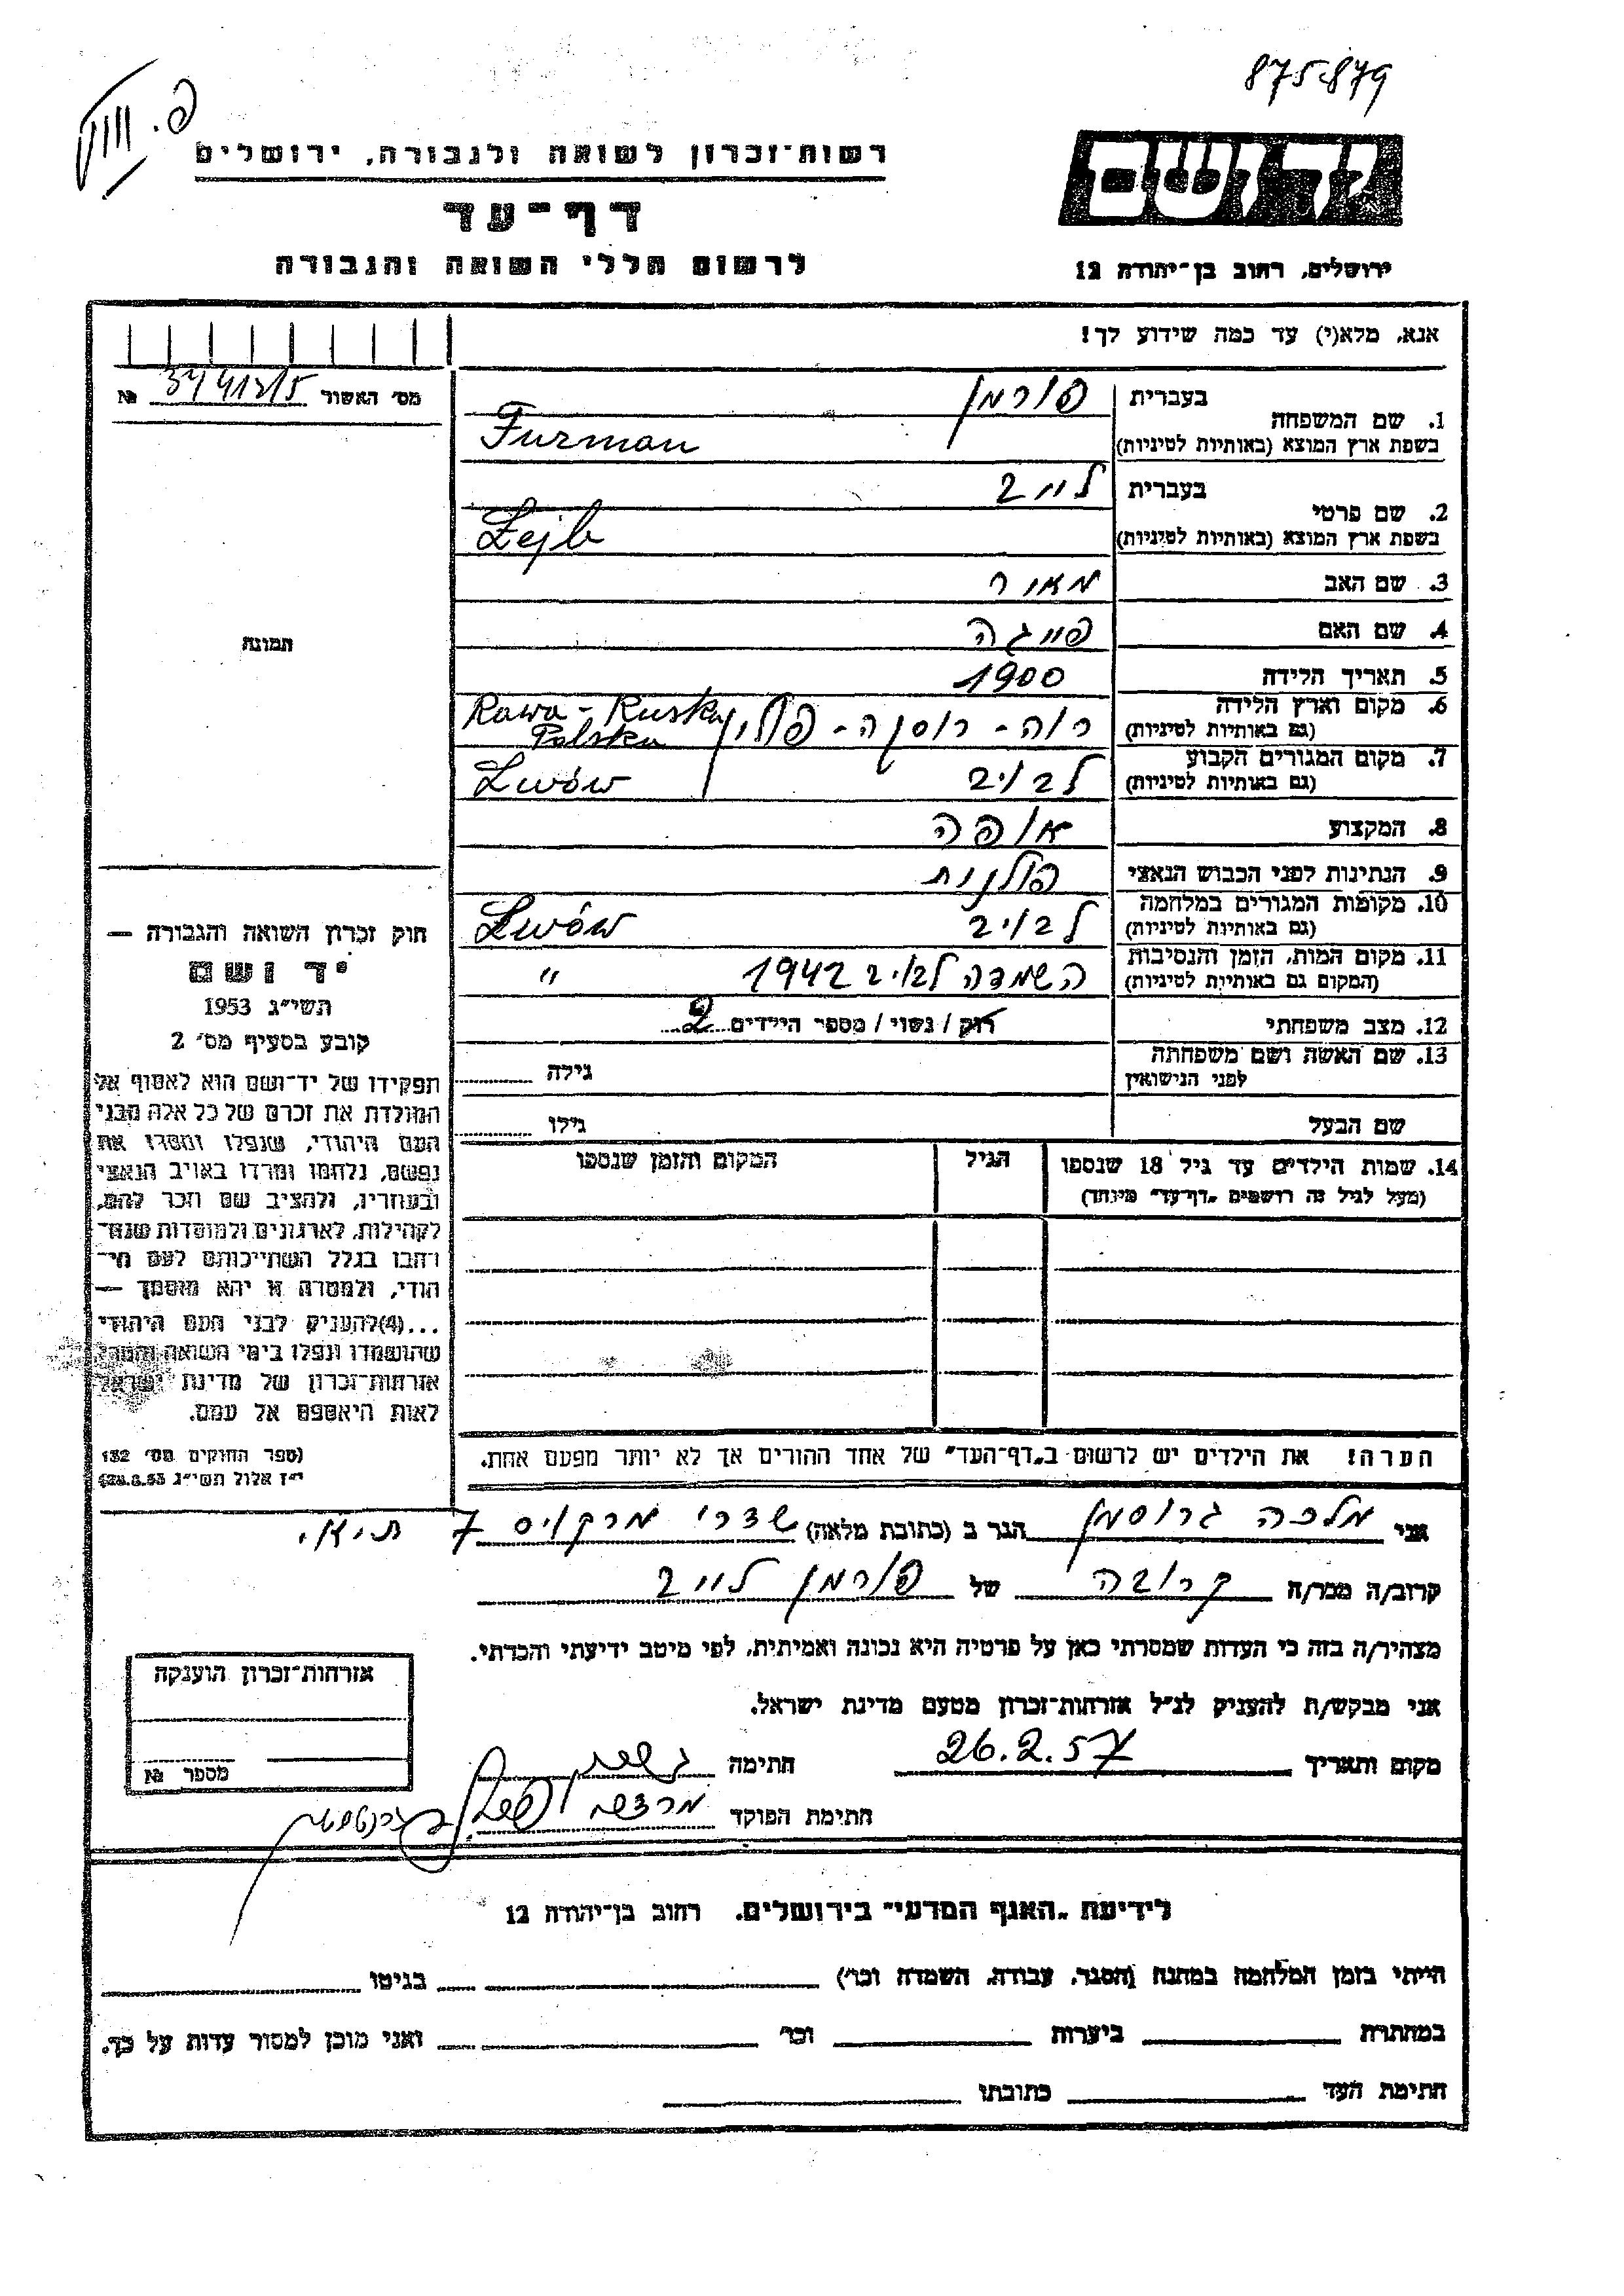 875-879
רשות־זכרון לשואה ולגבורה, ירושלים
יד ושם
דף־עד
לרשום חללי השואה והגבורה
ירושלים, רחוב בן־יהודה 12
אנא, מלא(י) עד כמה שידוע לך!
מס׳ האשור №
1. שם המשפחה
בעברית פורמן
בשפת ארץ המוצא (באותיות לטיניות) Furman
2. שם פרטי
בעברית לייב
בשפת ארץ המוצא (באותיות לטיניות) Lejb
3. שם האב מאיר
4. שם האם פייגה
5. תאריך הלידה 1900
6. מקום וארץ הלידה (גם באותיות לטיניות) רוה - רוסקה - פולין Rawa-Ruska Polska
7. מקום המגורים הקבוע (גם באותיות לטיניות) לבוב Lwów
8. המקצוע אופה
9. הנתינות לפני הכבוש הנאצי פולנית
10. מקומות המגורים במלחמה (גם באותיות לטיניות) לבוב Lwów
11. מקום המות, הזמן והנסיבות (המקום גם באותיות לטיניות) השמדה לבוב 1942 "
12. מצב משפחתי רוק / נשוי / מספר הילדים 2
13. שם האשה ושם משפחתה לפני הנישואין גילה
שם הבעל גילו
14. שמות הילדים עד גיל 18 שנספו
(מעל לגיל זה רושמים „דף־עד" מיוחד)
הגיל
המקום והזמן שנספו
הערה! את הילדים יש לרשום ב„דף־העד" של אחד ההורים אך לא יותר מפעם אחת.
תמונה
חוק זכרון השואה והגבורה —
יד ושם
תשי״ג 1953
קובע בסעיף מס׳ 2
תפקידו של יד־ושם הוא לאסוף אל
המולדת את זכרם של כל אלה מבני
העם היהודי, שנפלו ומסרו את
נפשם, נלחמו ומרדו באויב הנאצי
ובעוזריו, ולהציב שם וזכר להם,
לקהילות, לארגונים ולמוסדות שנח־
רבו בגלל השתייכותם לעם הי־
הודי, ולמטרה זו יהא מוסמך —
...(4)להעניק לבני העם היהודי
שהושמדו ונפלו בימי השואה והמרי
אזרחות־זכרון של מדינת ישראל
לאות היאספם אל עמם.
(ספר החוקים מס׳ 132
י״ז אלול תשי״ג 28.8.53)
אני מלכה גרוסמן הגר ב (כתובת מלאה) שדרי מרקוס 7 ת״א.
קרוב/ה מכר/ה קרובה של פורמן לייב
מצהיר/ה בזה כי העדות שמסרתי כאן על פרטיה היא נכונה ואמיתית, לפי מיטב ידיעתי והכרתי.
אני מבקש/ת להעניק לנ״ל אזרחות־זכרון מטעם מדינת ישראל.
מקום ותאריך 26.2.57 חתימה
חתימת הפוקד
אזרחות־זכרון הוענקה
מספר №
לידיעת „האגף המדעי" בירושלים. רחוב בן־יהודה 12
הייתי בזמן המלחמה במחנה (הסגר, עבודה, השמדה וכו׳) בגיטו
במחתרת ביערות וכו׳ ואני מוכן למסור עדות על כך.
חתימת העד כתובתו